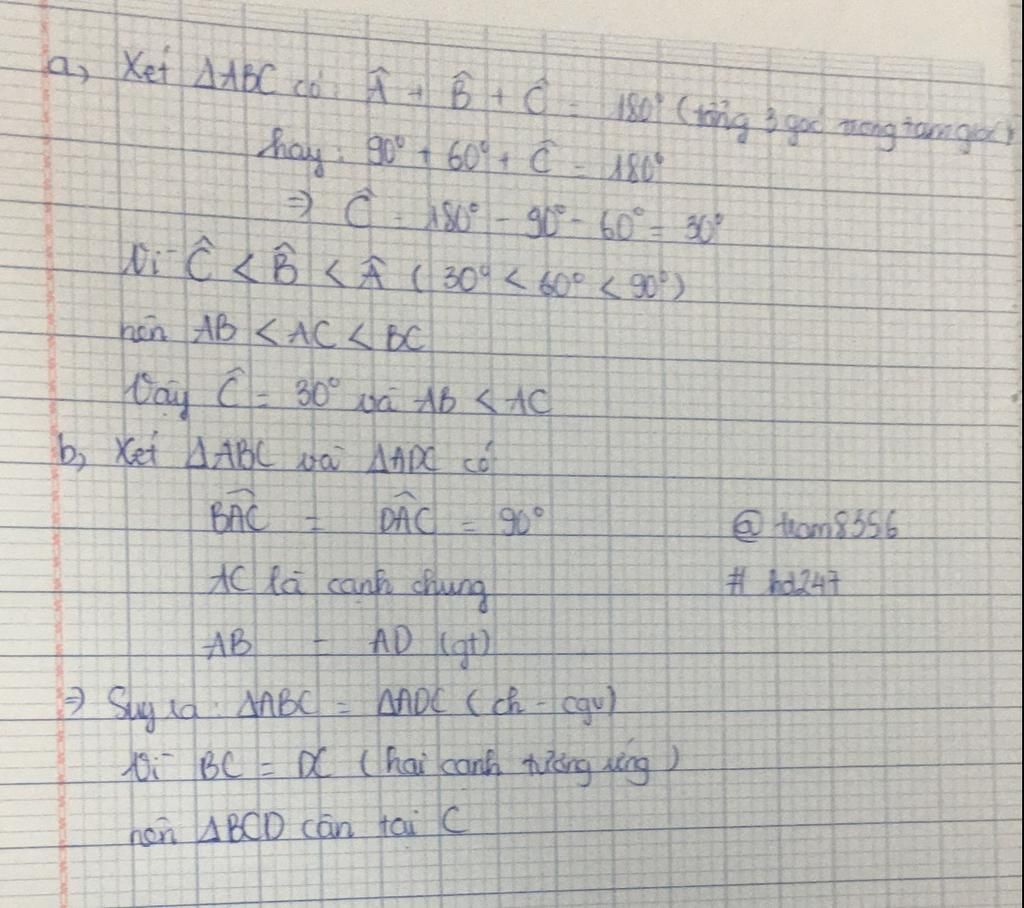 a, Xét ΔABC có: Â + B̂ + Ĉ = 180° (tổng 3 góc trong tam giác)
hay: 90° + 60° + Ĉ = 180°
⇒ Ĉ = 180° - 90° - 60° = 30°
Vì Ĉ < B̂ < Â (30° < 60° < 90°)
nên AB < AC < BC
Vậy Ĉ = 30° và AB < AC
b, Xét ΔABC và ΔADC có
BAC = DAC = 90°
@ tram8356
AC là cạnh chung
# hd247
AB = AD (gt)
⇒ Suy ra: ΔABC = ΔADC (ch - cgv)
Vì BC = DC (hai cạnh tương ứng)
nên ΔBCD cân tại C